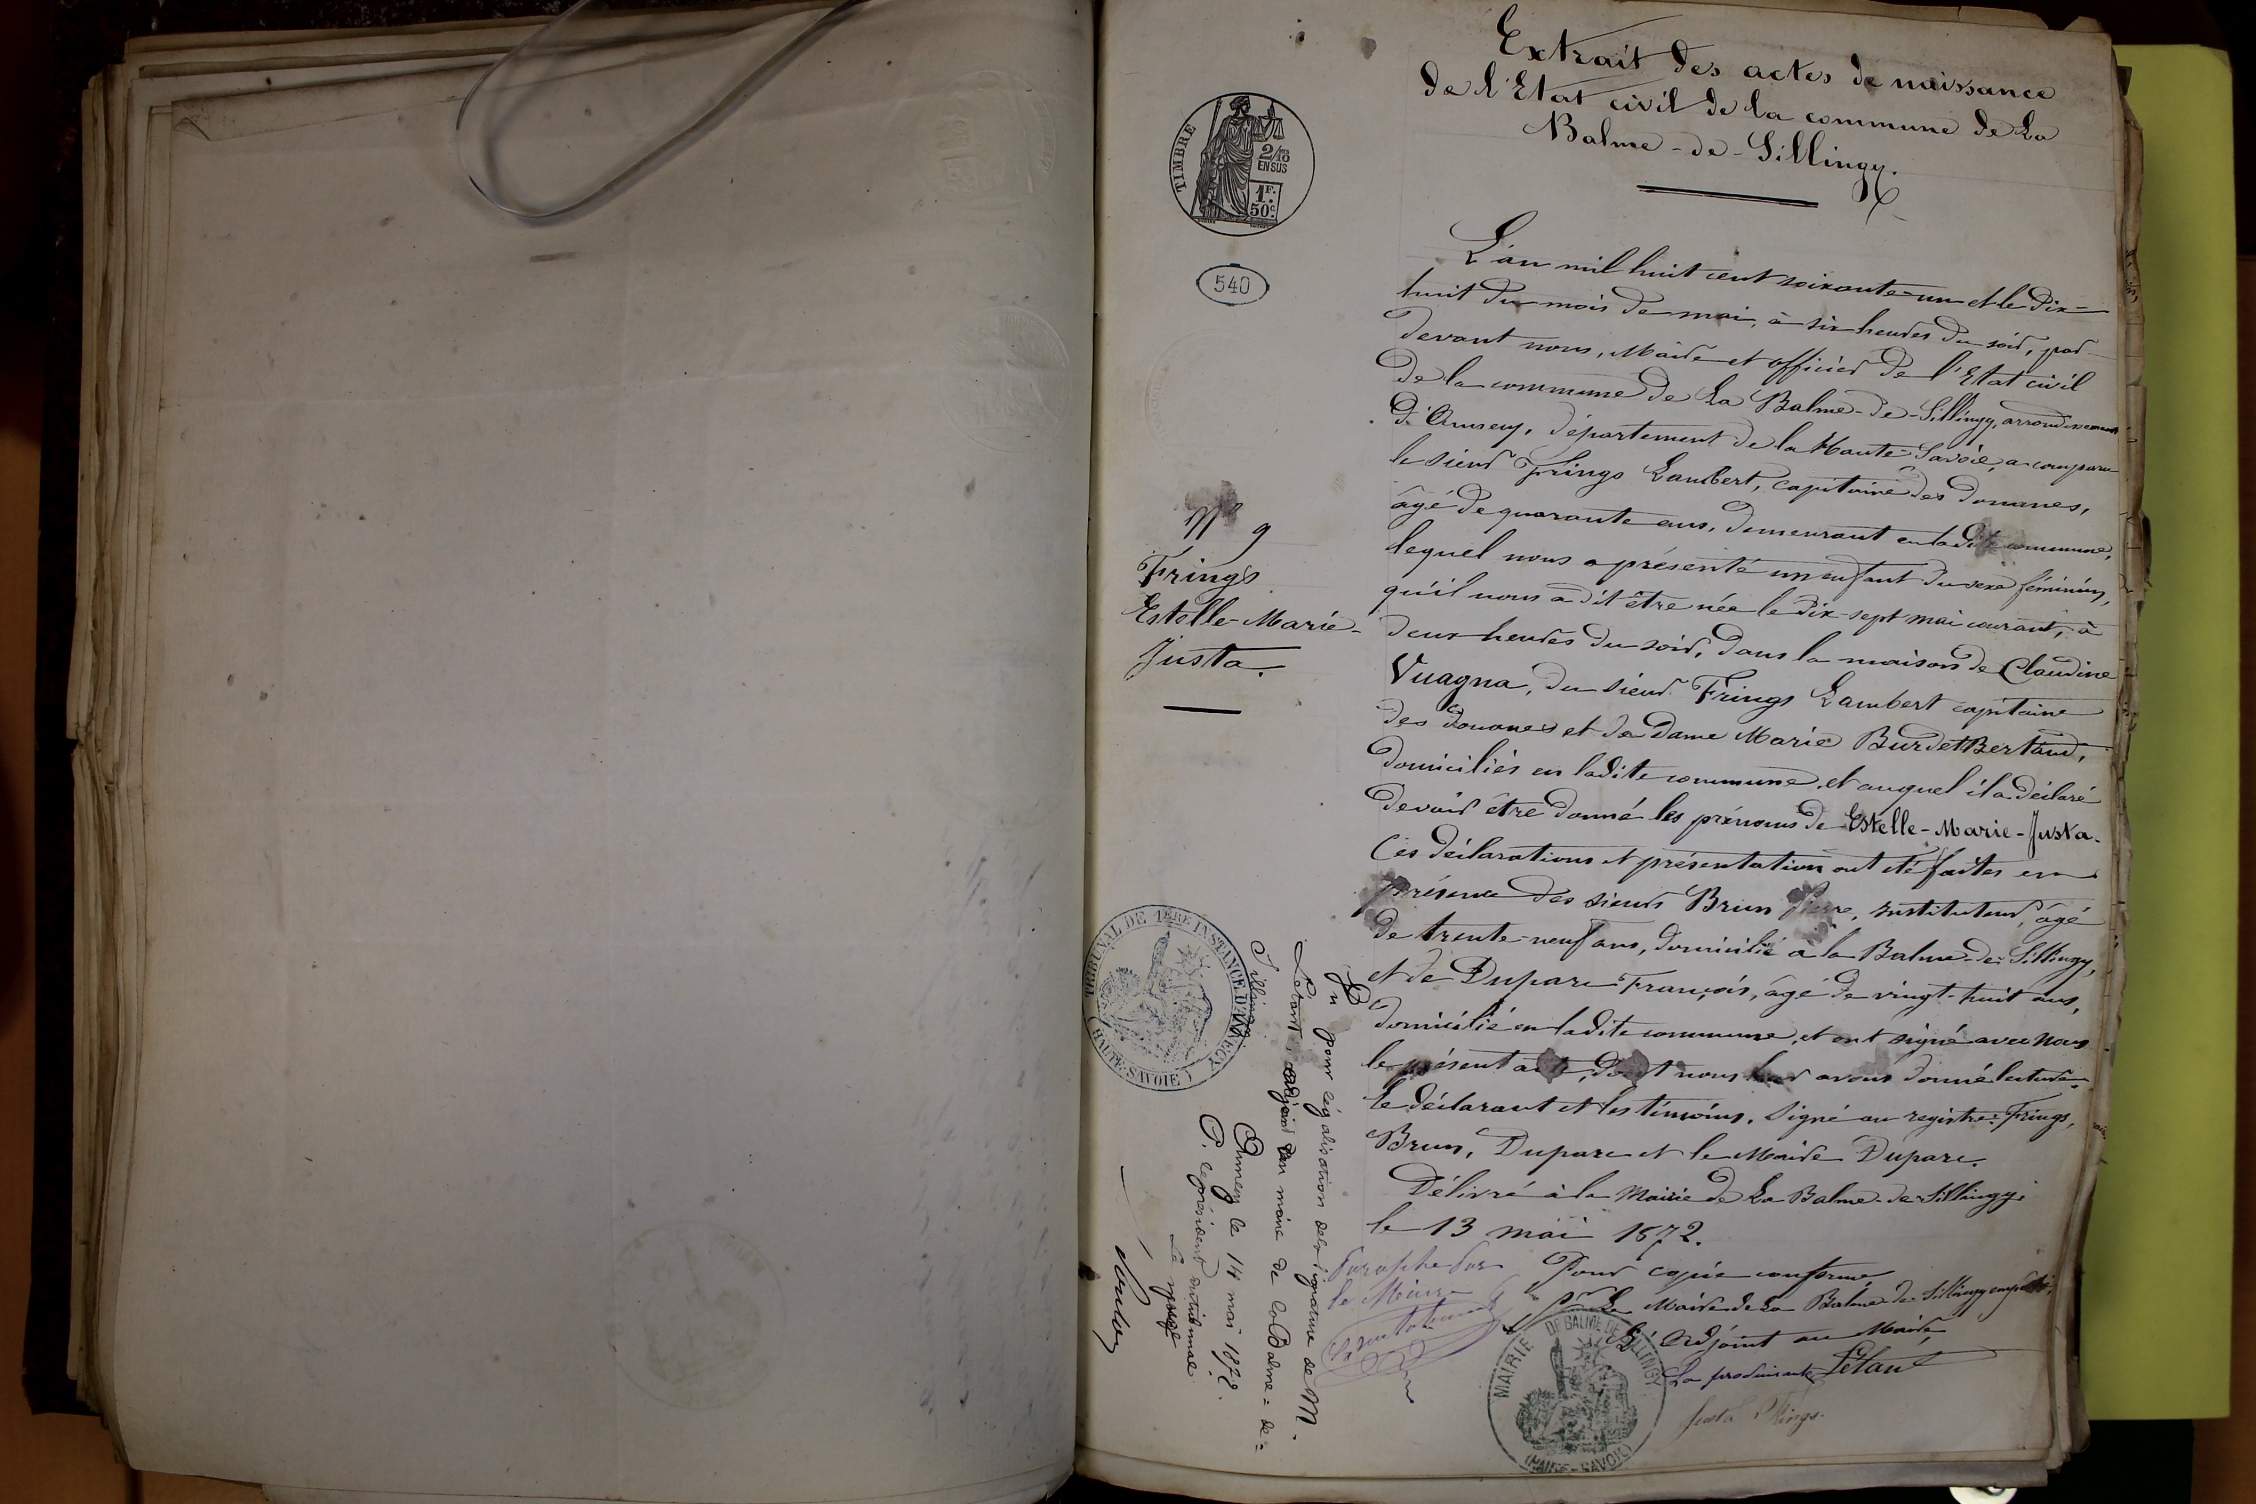 Extrait des actes de naissance
de l'Etat civil de la commune de La
Balme-de-Sillingy.
TIMBRE
2/10
EN SUS
1F.
50c.
540
N° 9
Frings
Estelle-Marie-
Justa.
L'an mil huit cent soixante-un et le dix-
huit du mois de mai, à six heures du soir, par-
devant nous, Maire et officier de l'Etat civil
de la commune de La Balme-de-Sillingy, arrondissement
d'Annecy, département de la Haute-Savoie, a comparu
le sieur Frings Lambert, capitaine des Douanes,
âgé de quarante ans, demeurant en ladite commune,
lequel nous a présenté un enfant du sexe féminin,
qu'il nous a dit être née le dix-sept mai courant, à
deux heures du soir, dans la maison de Claudine
Vuagna, du sieur Frings Lambert capitaine
des Douanes et de Dame Marie Burdet Bertaud,
domiciliés en ladite commune, et auquel il a déclaré
devoir être donné les prénoms de Estelle-Marie-Justa.
Ces déclarations et présentation ont été faites en
présence des sieurs Brun Pierre, instituteur, âgé
de trente-neuf ans, domicilié à la Balme-de-Sillingy,
et de Duparc François, âgé de vingt-huit ans,
domicilié en ladite commune, et ont signé avec nous
le présent acte, dont nous leur avons donné lecture,
le déclarant et les témoins. Signé au registre: Frings,
Brun, Duparc et le Maire Duparc.
Délivré à la Mairie de La Balme-de-Sillingy.
le 13 mai 1872.
Pour copie conforme
pr Le Maire de La Balme-de-Sillingy empêché,
L'Adjoint au Maire,
Létant
La produisante
Justa Frings.
Paraphé par
le Maire
MAIRIE DE BALME DE SILLINGY
(HAUTE-SAVOIE)
TRIBUNAL DE 1ERE INSTANCE D'ANNECY
(HAUTE-SAVOIE)
Vu pour légalisation de la signature de M.
Létant, adjoint au maire de La Balme-de-
Sillingy.
Annecy le 14 mai 1872.
P. le président
Le juge